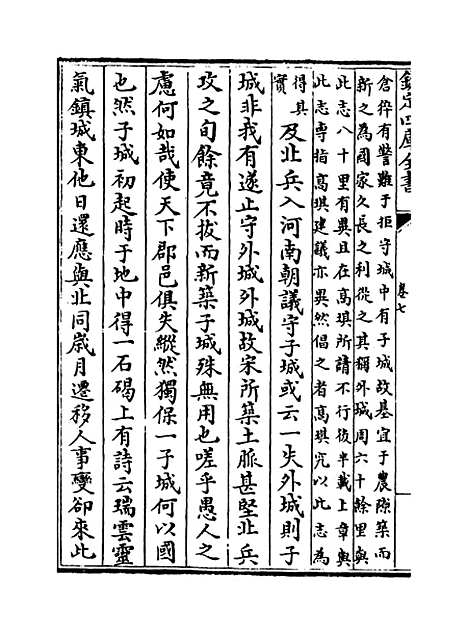 欽定四庫全書
卷七
倉猝有警難于拒守城中有子城故基宜于農隙築而
新之為國家久長之利從之其稱外城周六十餘里與
此志八十里有異且在高琪所請不行後半載上章與
此志専指高琪建議亦異然倡之者高琪究以此志為
得其
實
及北兵入河南朝議守子城或云一失外城則子
城非我有遂止守外城外城故宋所築土脈甚堅北兵
攻之旬餘竟不拔而新築子城殊無用也嗟乎愚人之
慮何如哉使天下郡邑俱失縱然獨保一子城何以國
也然子城初起時于地中得一石碣上有詩云瑞雲靈
氣鎮城東他日還應與北同歳月遷移人事變卻來此